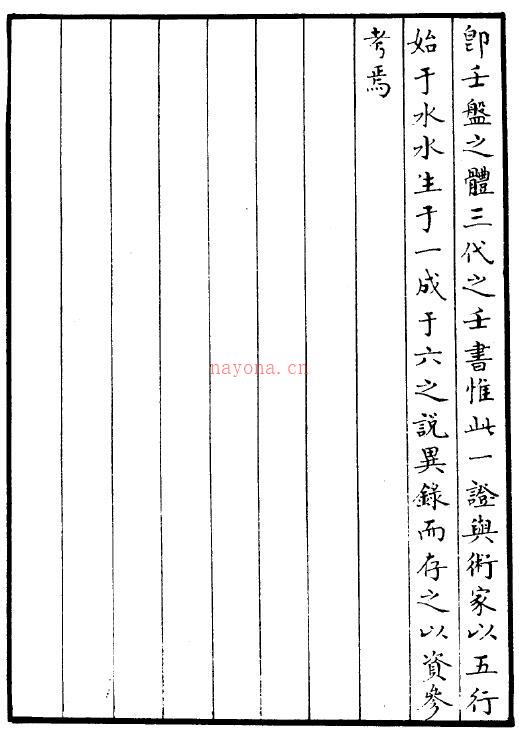 卽壬盤之體三代之壬書惟此一證與術家以五行
始于水水生于一成于六之説異錄而存之以資參
考焉
nayona.cn